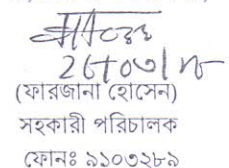 (ফারজানা হোসেন)
সহকারী পরিচালক
ফোনঃ ৯১০৩২৮৯